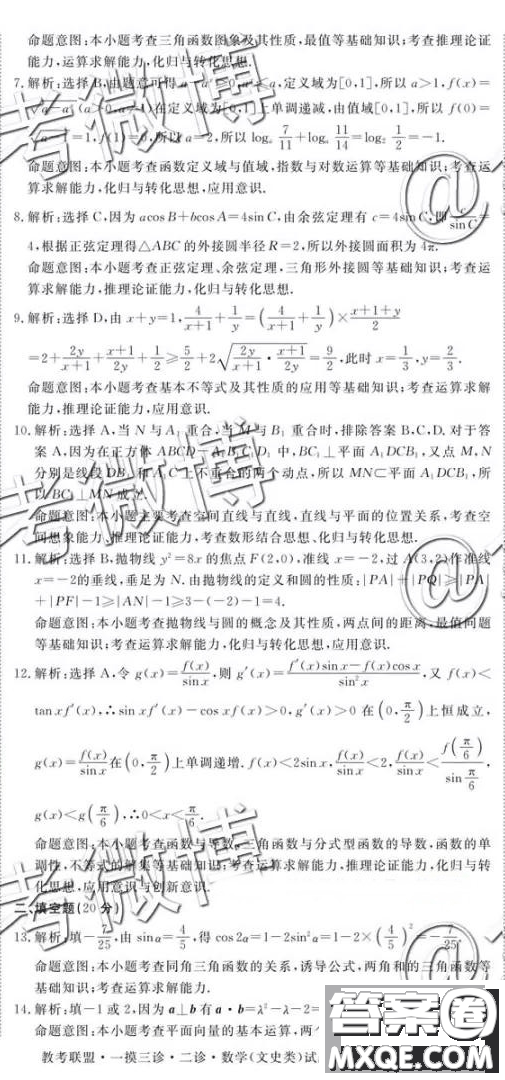 命题意图:本小题考查三角函数图象及其性质,最值等基础知识;考查推理论证
能力,运算求解能力,化归与转化思想.
7.解析:选择B,由题意可得 定义域为[0,1],所以a>1,f(x)=
在定义域为[0,1]上单调递减,由值域[0,1],所以f(0)=
√a-1=1,f(1)=0,所以a=2,所以logₐ 7/11+logₐ 11/14=log₂ 1/2=-1.
命题意图:本小题考查函数定义域与值域,指数与对数运算等基础知识;考查运
算求解能力,化归与转化思想,应用意识.
8.解析:选择C,因为acosB+bcosA=4sinC,由余弦定理有c=4sinC,即c/sinC=
4,根据正弦定理得△ABC的外接圆半径R=2,所以外接圆面积为4π.
命题意图:本小题考查正弦定理、余弦定理,三角形外接圆等基础知识;考查运
算求解能力,推理论证能力,化归与转化思想.
9.解析:选择D,由x+y=1,4/(x+1)+1/y=(4/(x+1)+1/y)×(x+1+y)/2
=2+2y/(x+1)+(x+1)/2y+1/2≥5/2+2√(2y/(x+1)·(x+1)/2y)=9/2,此时x=1/3,y=2/3.
命题意图:本小题考查基本不等式及其性质的应用等基础知识;考查运算求解
能力,推理论证能力,应用意识.
10.解析:选择A,当N与A₁重合,当M与B₁重合时,排除答案B,C,D.对于答
案A,因为在正方体ABCD-A₁B₁C₁D₁中,BC₁⊥平面A₁DCB₁,又点M,N
分别是线段DB₁和A₁C上不重合的两个动点,所以MN⊂平面A₁DCB₁,所
以BC₁⊥MN成立.
命题意图:本小题主要考查空间直线与直线,直线与平面的位置关系,考查空
间想象能力、推理论证能力,考查数形结合思想、化归与转化思想.
11.解析:选择B,抛物线y²=8x的焦点F(2,0),准线x=-2,过A(3,2)作准线
x=-2的垂线,垂足为N.由抛物线的定义和圆的性质:|PA|+|PQ|≥|PA|
+|PF|-1≥|AN|-1≥3-(-2)-1=4.
命题意图:本小题考查抛物线与圆的概念及其性质,两点间的距离,最值问题
等基础知识;考查运算求解能力,化归与转化思想,应用意识.
12.解析:选择A,令g(x)=f(x)/sinx,则g′(x)=(f′(x)sinx-f(x)cosx)/sin²x,又f(x)<
tanxf′(x),∴sinxf′(x)-cosxf(x)>0,g′(x)>0在(0,π/2)上恒成立,
g(x)=f(x)/sinx在(0,π/2)上单调递增.f(x)<2sinx,f(x)/sinx<2,f(x)/sinx<f(π/6)/sin π/6,
g(x)<g(π/6),∴0<x<π/6.
命题意图:本小题考查函数与导数,三角函数与分式型函数的导数,函数的单
调性,不等式的解集等基础知识;考查运算求解能力,推理论证能力,化归与转
化思想,应用意识与创新意识.
二、填空题(20分)
13.解析:填-7/25,由sinα=4/5,得cos2α=1-2sin²α=1-2×(4/5)²=-7/25.
命题意图:本小题考查同角三角函数的关系,诱导公式,两角和的三角函数等
基础知识;考查运算求解能力.
14.解析:填-1或2,因为a⊥b有a·b=λ²-λ-2=
命题意图:本小题考查平面向量的基本运算,两
教考联盟·一摸三诊·二诊·数学(文史类)试
考微博
@
考微博
@
考微博
@
答案圈
MXQE.COM